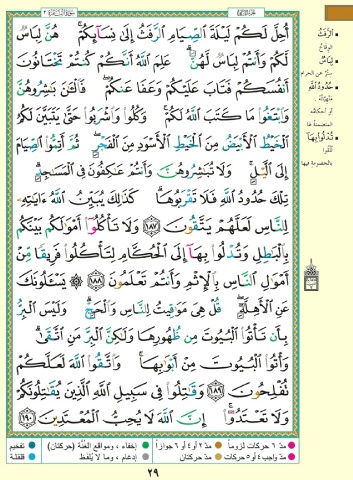 أُحِلَّ لَكُمْ لَيْلَةَ ٱلصِّيَامِ ٱلرَّفَثُ إِلَىٰ نِسَآئِكُمْ ۚ هُنَّ لِبَاسٌ
لَّكُمْ وَأَنتُمْ لِبَاسٌ لَّهُنَّ ۗ عَلِمَ ٱللَّهُ أَنَّكُمْ كُنتُمْ تَخْتَانُونَ
أَنفُسَكُمْ فَتَابَ عَلَيْكُمْ وَعَفَا عَنكُمْ ۖ فَٱلْـَٰٔنَ بَـٰشِرُوهُنَّ
وَٱبْتَغُوا۟ مَا كَتَبَ ٱللَّهُ لَكُمْ ۚ وَكُلُوا۟ وَٱشْرَبُوا۟ حَتَّىٰ يَتَبَيَّنَ لَكُمُ
ٱلْخَيْطُ ٱلْأَبْيَضُ مِنَ ٱلْخَيْطِ ٱلْأَسْوَدِ مِنَ ٱلْفَجْرِ ۖ ثُمَّ أَتِمُّوا۟ ٱلصِّيَامَ
إِلَى ٱلَّيْلِ ۚ وَلَا تُبَـٰشِرُوهُنَّ وَأَنتُمْ عَـٰكِفُونَ فِى ٱلْمَسَـٰجِدِ ۗ
تِلْكَ حُدُودُ ٱللَّهِ فَلَا تَقْرَبُوهَا ۗ كَذَٰلِكَ يُبَيِّنُ ٱللَّهُ ءَايَـٰتِهِۦ
لِلنَّاسِ لَعَلَّهُمْ يَتَّقُونَ ١٨٧ وَلَا تَأْكُلُوٓا۟ أَمْوَٰلَكُم بَيْنَكُم
بِٱلْبَـٰطِلِ وَتُدْلُوا۟ بِهَآ إِلَى ٱلْحُكَّامِ لِتَأْكُلُوا۟ فَرِيقًا مِّنْ
أَمْوَٰلِ ٱلنَّاسِ بِٱلْإِثْمِ وَأَنتُمْ تَعْلَمُونَ ١٨٨ يَسْـَٔلُونَكَ
عَنِ ٱلْأَهِلَّةِ ۖ قُلْ هِىَ مَوَٰقِيتُ لِلنَّاسِ وَٱلْحَجِّ ۗ وَلَيْسَ ٱلْبِرُّ
بِأَن تَأْتُوا۟ ٱلْبُيُوتَ مِن ظُهُورِهَا وَلَـٰكِنَّ ٱلْبِرَّ مَنِ ٱتَّقَىٰ ۗ
وَأْتُوا۟ ٱلْبُيُوتَ مِنْ أَبْوَٰبِهَا ۚ وَٱتَّقُوا۟ ٱللَّهَ لَعَلَّكُمْ
تُفْلِحُونَ ١٨٩ وَقَـٰتِلُوا۟ فِى سَبِيلِ ٱللَّهِ ٱلَّذِينَ يُقَـٰتِلُونَكُمْ
وَلَا تَعْتَدُوٓا۟ ۚ إِنَّ ٱللَّهَ لَا يُحِبُّ ٱلْمُعْتَدِينَ ١٩٠
الرَّفَثُ
الوقاع
لِبَاسٌ
سِترٌ عن الحرام
حُدُودُ اللهِ
تُدْلُوا بِهَا
بالخصومة فيها
مدّ ٦ حركات لزوماً مدّ ٢ أو ٤ أو ٦ جوازاً إخفاء، ومواقع الغنّة (حركتان) تفخيم
مدّ واجب ٤ أو ٥ حركات مدّ حركتان إدغام، وما لا يُلفظ قلقلة
٢٩